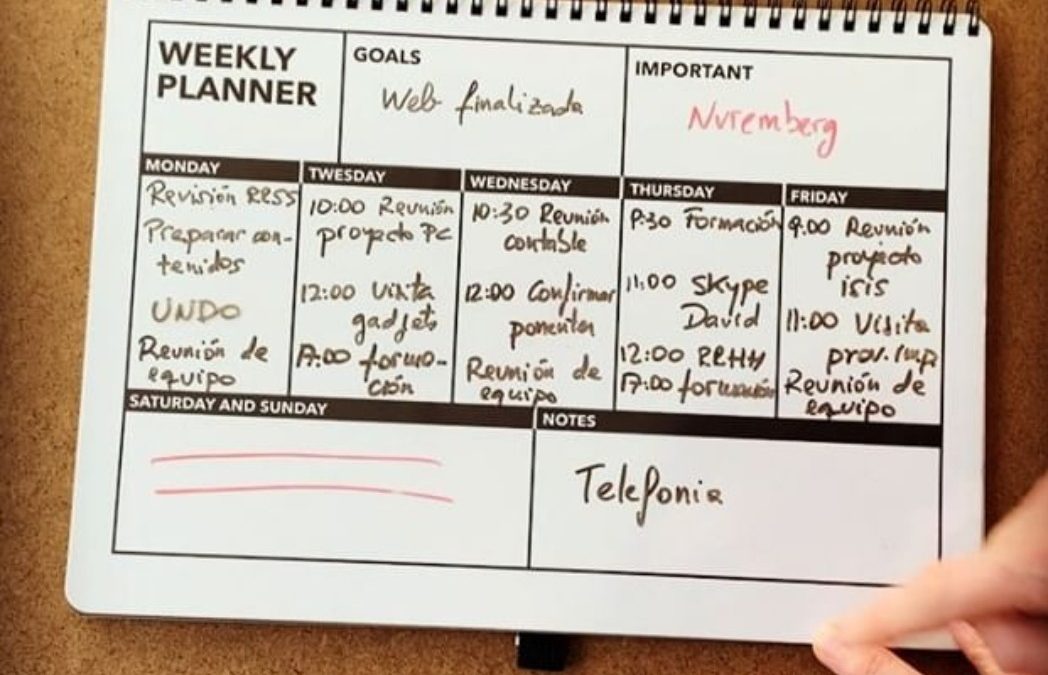 WEEKLY
PLANNER
GOALS
Web finalizada
IMPORTANT
Nuremberg
MONDAY
Revisión RRSS
Preparar con-
tenidos
UNDO
Reunión de
equipo
TUESDAY
10:00 Reunión
proyecto PC
12:00 Visita
gadjets
17:00 forma-
ción
WEDNESDAY
10:30 Reunión
contable
12:00 Confirmar
ponentes
Reunión de
equipo
THURSDAY
9:30 Formación
11:00 Skype
David
12:00 RRHH
17:00 formación
FRIDAY
9:00 Reunión
proyecto
isis
11:00 Visita
prov. imp
Reunión de
equipo
SATURDAY AND SUNDAY
NOTES
Telefonia